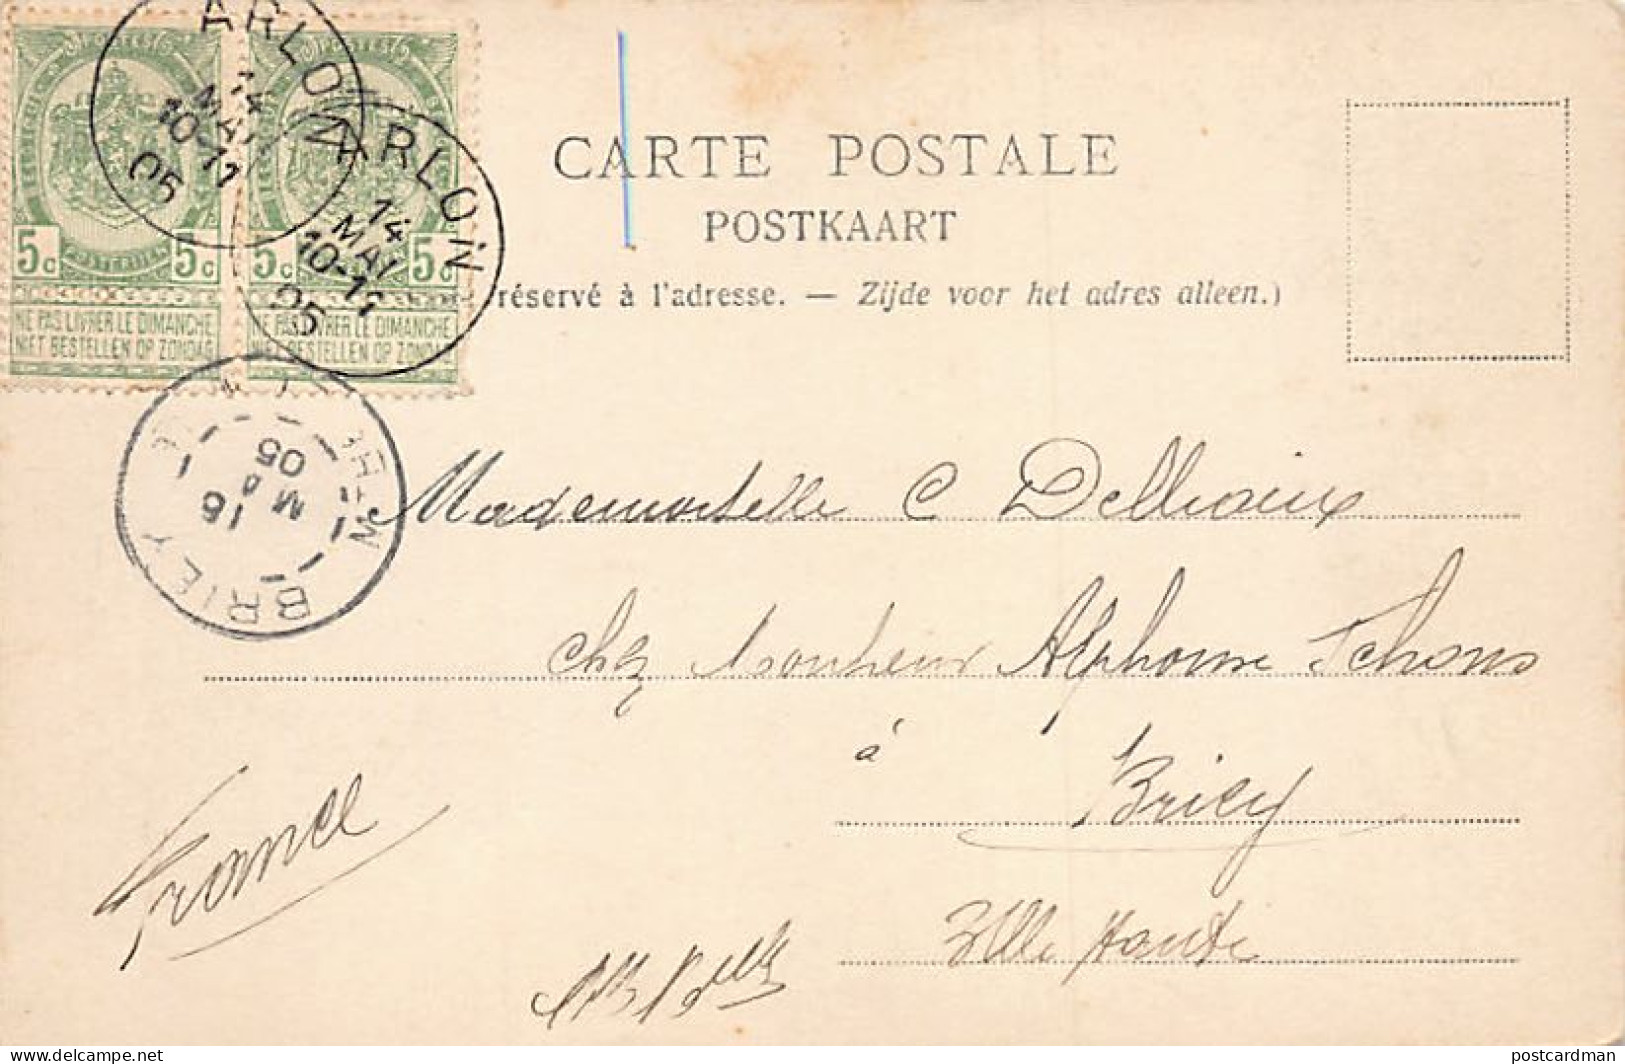 ARLON
14
MAI
10-11
05
ARLON
14
MAI
10-11
05
POSTES
POSTES
5c 5c 5c 5c
NE PAS LIVRER LE DIMANCHE
NIET BESTELLEN OP ZONDAG
NE PAS LIVRER LE DIMANCHE
NIET BESTELLEN OP ZONDAG
CARTE POSTALE
POSTKAART
réservé à l'adresse. — Zijde voor het adres alleen.)
BRIEY
16
05
Mademoiselle C
chez Monsieur Alphonse Schons
à Briey
France
delcampe.net
postcardman